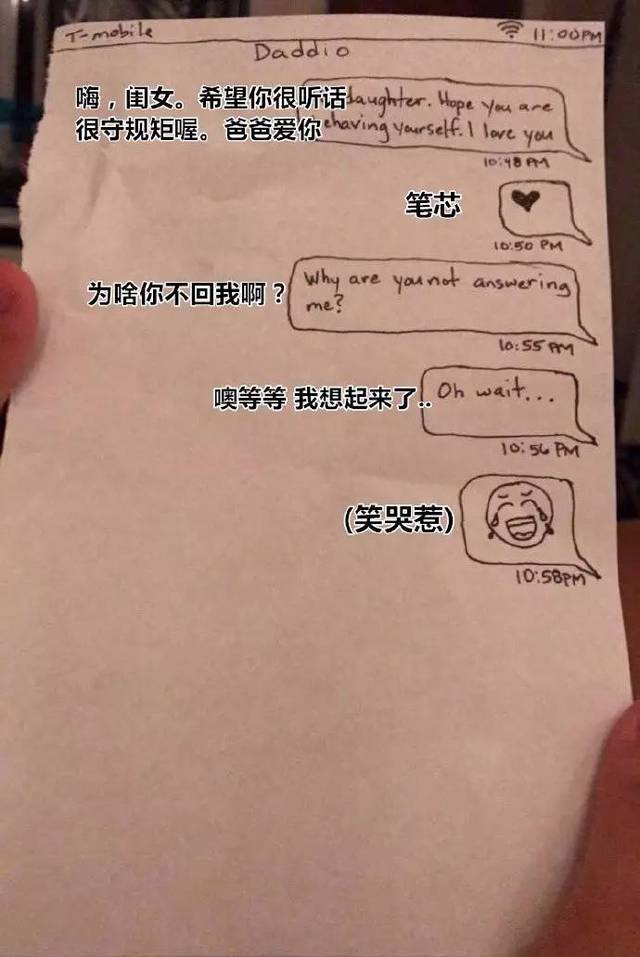 T-mobile 11:00PM
Daddio
嗨，闺女。希望你很听话
很守规矩喔。爸爸爱你
daughter. Hope you are
behaving yourself. I love you
10:48 PM
笔芯
10:50 PM
为啥你不回我啊？
Why are you not answering
me?
10:55 PM
噢等等 我想起来了..
Oh wait...
10:56 PM
(笑哭惹)
10:58PM